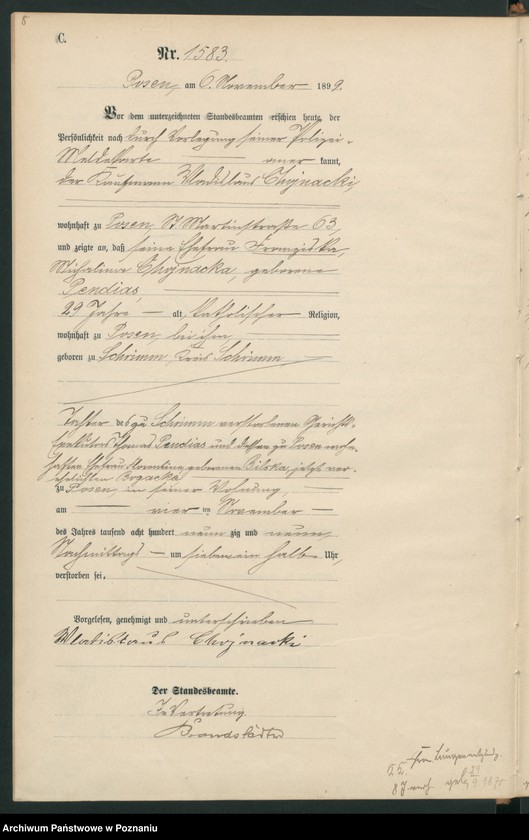 8
C.
Nr. 1583.
Posen, am 6. November 1899.
Vor dem unterzeichneten Standesbeamten erschien heute, der
Persönlichkeit nach durch Vorlegung seiner Polizei-
Meldekarte anerkannt,
der Kaufmann Wladislaus Chojnacki,
wohnhaft zu Posen, St. Martinstraße 63,
und zeigte an, daß seine Ehefrau Franziska,
Michalina Chojnacka, geborene
Pendias,
29 Jahre alt, katholischer Religion,
wohnhaft zu Posen, bei ihm,
geboren zu Schrimm, Kreis Schrimm,
Tochter des zu Schrimm verstorbenen Gerichts-
Exekutors Thomas Pendias und dessen zu Posen wohn-
haften Ehefrau Florentina, geborenen Bilska, jetzt ver-
ehelichten Bogacka
zu Posen, in seiner Wohnung,
am vier ten November
des Jahres tausend acht hundert neun zig und neun
Nachmittags um sieben ein halb Uhr,
verstorben sei.
Vorgelesen, genehmigt und unterschrieben
Wladislaus Chojnacki
Der Standesbeamte.
In Vertretung.
Brandstädter
Archiwum Państwowe w Poznaniu